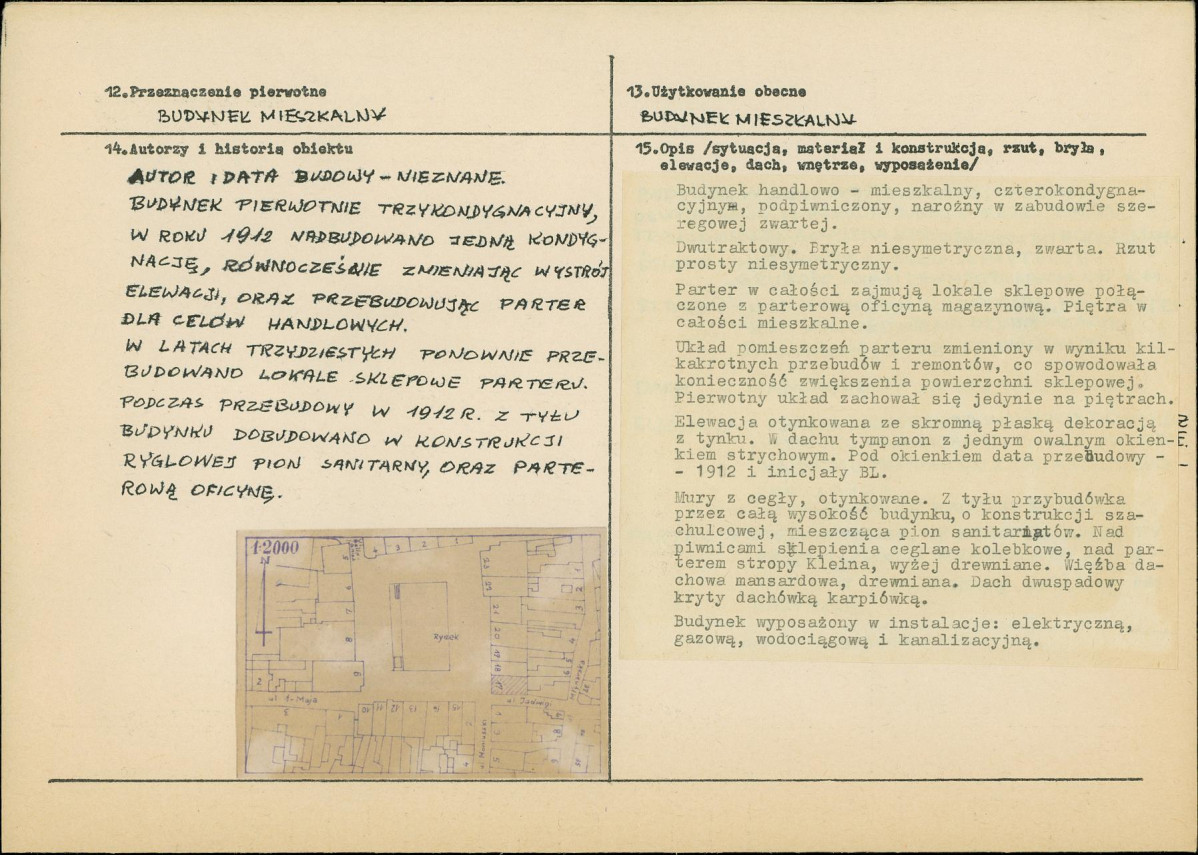 12.Przeznaczenie pierwotne
BUDYNEK MIESZKALNY
13.Użytkowanie obecne
BUDYNEK MIESZKALNY
14.Autorzy i historia obiektu
AUTOR I DATA BUDOWY – NIEZNANE.
BUDYNEK PIERWOTNIE TRZYKONDYGNACYJNY,
W ROKU 1912 NADBUDOWANO JEDNĄ KONDYG-
NACJĘ, RÓWNOCZEŚNIE ZMIENIAJĄC WYSTRÓJ
ELEWACJI, ORAZ PRZEBUDOWUJĄC PARTER
DLA CELÓW HANDLOWYCH.
W LATACH TRZYDZIESTYCH PONOWNIE PRZE-
BUDOWANO LOKALE SKLEPOWE PARTERU.
PODCZAS PRZEBUDOWY W 1912 R. Z TYŁU
BUDYNKU DOBUDOWANO W KONSTRUKCJI
RYGLOWEJ PION SANITARNY, ORAZ PARTE-
ROWĄ OFICYNĘ.
1:2000
N
Rynek
ul. 1-Maja
ul. Jadwigi
Młynarska
ul. Moniuszki
15.Opis /sytuacja, materiał i konstrukcja, rzut, bryła,
elewacje, dach, wnętrze, wyposażenie/
Budynek handlowo - mieszkalny, czterokondygna-
cyjnym, podpiwniczony, narożny w zabudowie sze-
regowej zwartej.
Dwutraktowy. Bryła niesymetryczna, zwarta. Rzut
prosty niesymetryczny.
Parter w całości zajmują lokale sklepowe połą-
czone z parterową oficyną magazynową. Piętra w
całości mieszkalne.
Układ pomieszczeń parteru zmieniony w wyniku kil-
kakrotnych przebudów i remontów, co spowodowała
konieczność zwiększenia powierzchni sklepowej.
Pierwotny układ zachował się jedynie na piętrach.
Elewacja otynkowana ze skromną płaską dekoracją
z tynku. W dachu tympanon z jednym owalnym okien-
kiem strychowym. Pod okienkiem data przebudowy -
- 1912 i inicjały BL.
Mury z cegły, otynkowane. Z tyłu przybudówka
przez całą wysokość budynku, o konstrukcji sza-
chulcowej, mieszcząca pion sanitariatów. Nad
piwnicami sklepienia ceglane kolebkowe, nad par-
terem stropy Kleina, wyżej drewniane. Więźba da-
chowa mansardowa, drewniana. Dach dwuspadowy
kryty dachówką karpiówką.
Budynek wyposażony w instalacje: elektryczną,
gazową, wodociągową i kanalizacyjną.